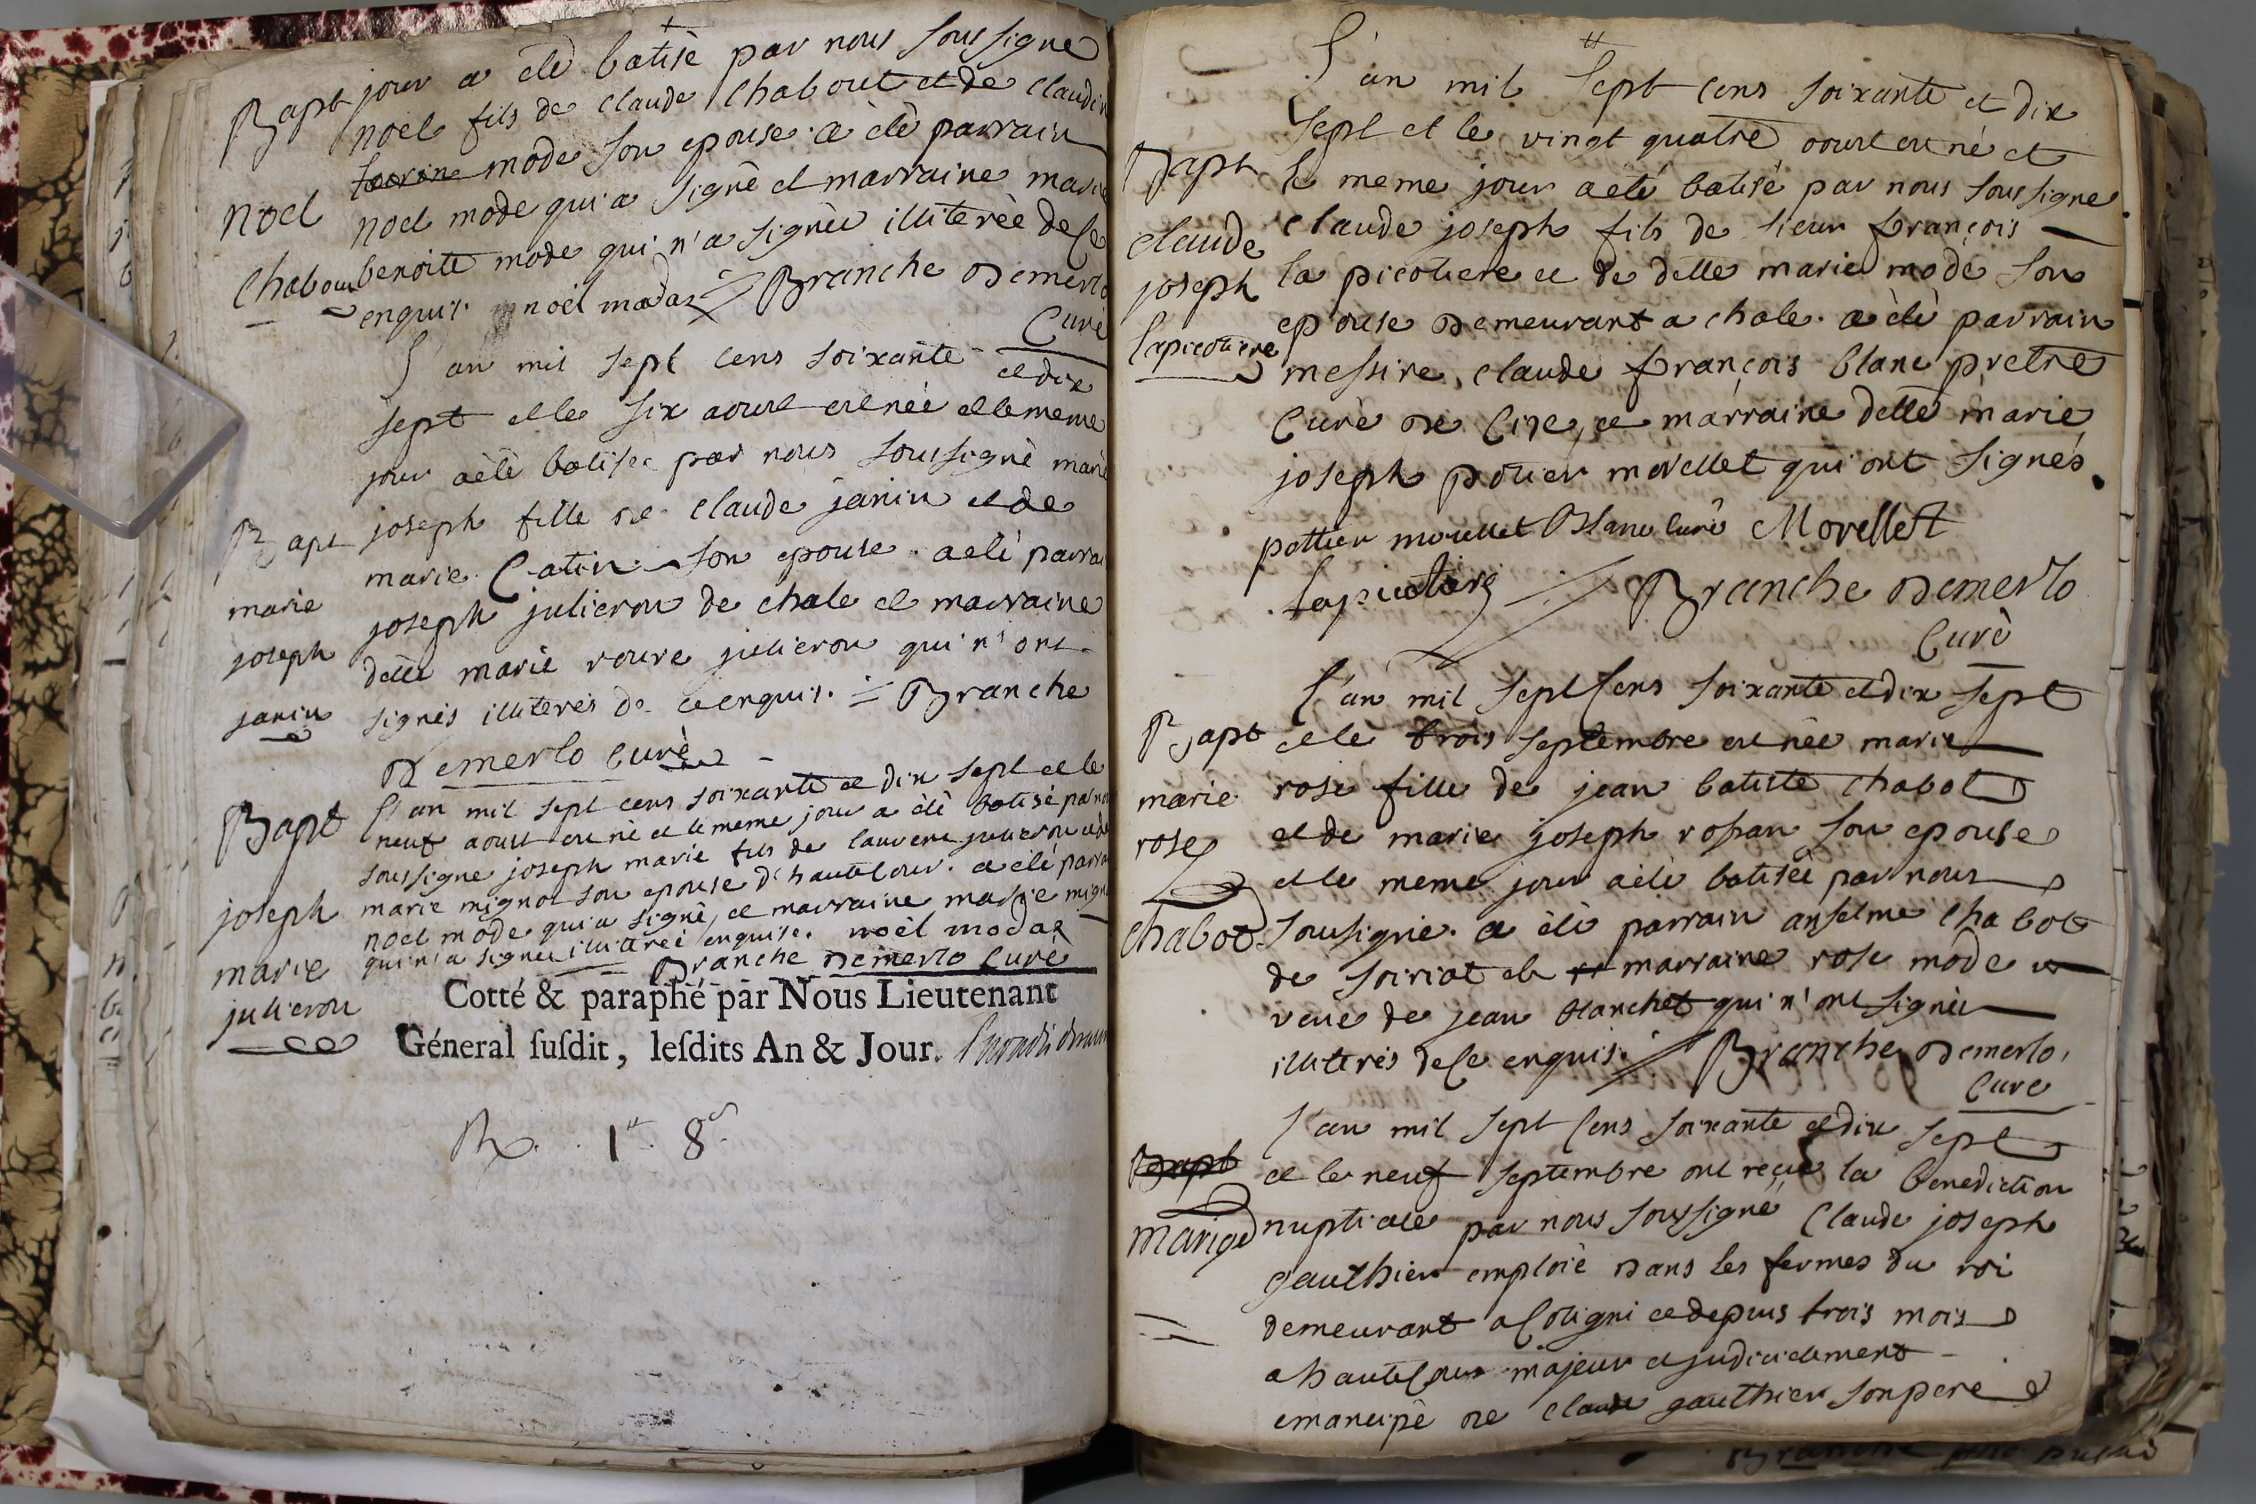 jour a èté batisè par nous soussigné
Bapt
noel fils de claude Chabout et de claudin
mode son epouse. a èlè parrain
noel
noel mode qui a signè et marraine marie
Chabout
benoite mode qui n'a signèe illiterèe de ce
enquis. noèl modaz Branche Demerlo
Curè
L'an mil sept cens soixante et dix
sept et le six aoust est nèe et le meme
jour a èlè batisèe par nous soussignè marie
Bapt
joseph fille de claude janin et de
marie Catin son epouse. a eté parrai
marie
joseph julieron de chale et marraine
joseph
delle marie roure julieron qui n'ont
janin
signès illiterès de ce enquis. Branche
Demerlo Curè
Bapt
L'an mil sept cens soixante et dix sept et le
neuf aoust est nè et le meme jour a èlè batisè par nou
soussigne joseph marie fils de laurent julieron et de
joseph
marie mignot son epouse d'hautecour. a èlé parra
marie
noel mode qui a signè, et marraine marie mign
julieron
qui n'a signèe illiterèe enquise. noèl modaz
Branche Demerlo Curè
Cotté & paraphé par Nous Lieutenant
Géneral susdit, lesdits An & Jour.
R. 1er. 8
L'an mil sept cens soixante et dix
sept et le vingt quatre aoust est né et
Bapt
le meme jour a eté batisé par nous soussigne
claude
claude joseph fils de sieur françois
joseph
la picotiere et de delle marie mode son
lapicotiere
epouse demeurant a chale. a èlè parrain
messire claude françois blanc prètre
Curè de Cize, et marraine delle marie
joseph potier morellet qui ont signès
pottier morellet Blanc curè Morellet
lapicotiere Branche Demerlo
Curè
L'an mil sept cens soixante et dix sept
Bapt
et le trois septembre est nèe marie
marie
rose fille de jean batiste chabot
rose
et de marie joseph rossan son epouse
et le meme jour a èlè batisèe par nous
chabot
sousignè. a èlè parrain anselme chabot
de soiriat et marraine rose mode
veuve de jean blanchet qui n'ont signèe
illiterès de ce enquis. Branche Demerlo
Cure
L'an mil sept cens soixante et dix sept
Bapt
et le neuf septembre ont reçue la benediction
marige
nuptiale par nous soussignè Claude joseph
gauthier emploiè dans les fermes du roi
demeurant a Coligni et depuis trois mois
a hautecour majeur et judicielement
emancipè de claude gauthier son pere